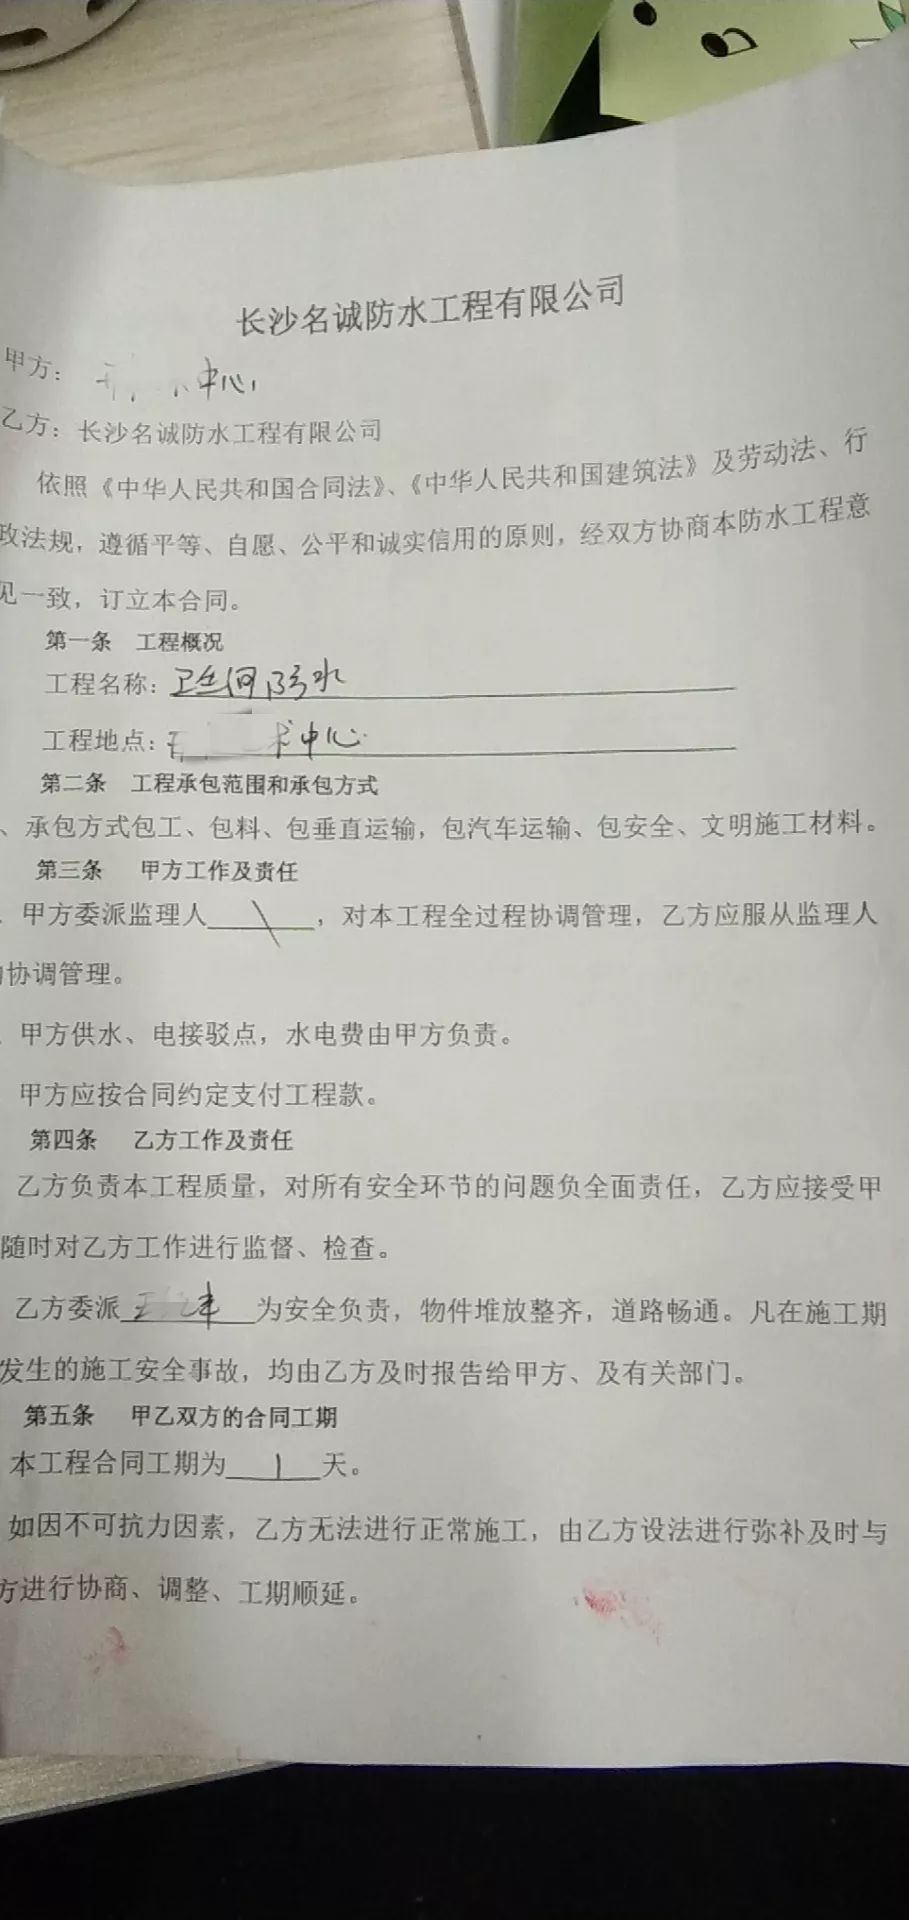 长沙名诚防水工程有限公司
甲方：中心
乙方：长沙名诚防水工程有限公司
依照《中华人民共和国合同法》、《中华人民共和国建筑法》及劳动法、行
政法规，遵循平等、自愿、公平和诚实信用的原则，经双方协商本防水工程意
见一致，订立本合同。
第一条 工程概况
工程名称：卫生间防水
工程地点：术中心
第二条 工程承包范围和承包方式
、承包方式包工、包料、包垂直运输，包汽车运输、包安全、文明施工材料。
第三条 甲方工作及责任
甲方委派监理人 ，对本工程全过程协调管理，乙方应服从监理人
协调管理。
甲方供水、电接驳点，水电费由甲方负责。
甲方应按合同约定支付工程款。
第四条 乙方工作及责任
乙方负责本工程质量，对所有安全环节的问题负全面责任，乙方应接受甲
随时对乙方工作进行监督、检查。
乙方委派 为安全负责，物件堆放整齐，道路畅通。凡在施工期
发生的施工安全事故，均由乙方及时报告给甲方、及有关部门。
第五条 甲乙双方的合同工期
本工程合同工期为1天。
如因不可抗力因素，乙方无法进行正常施工，由乙方设法进行弥补及时与
方进行协商、调整、工期顺延。